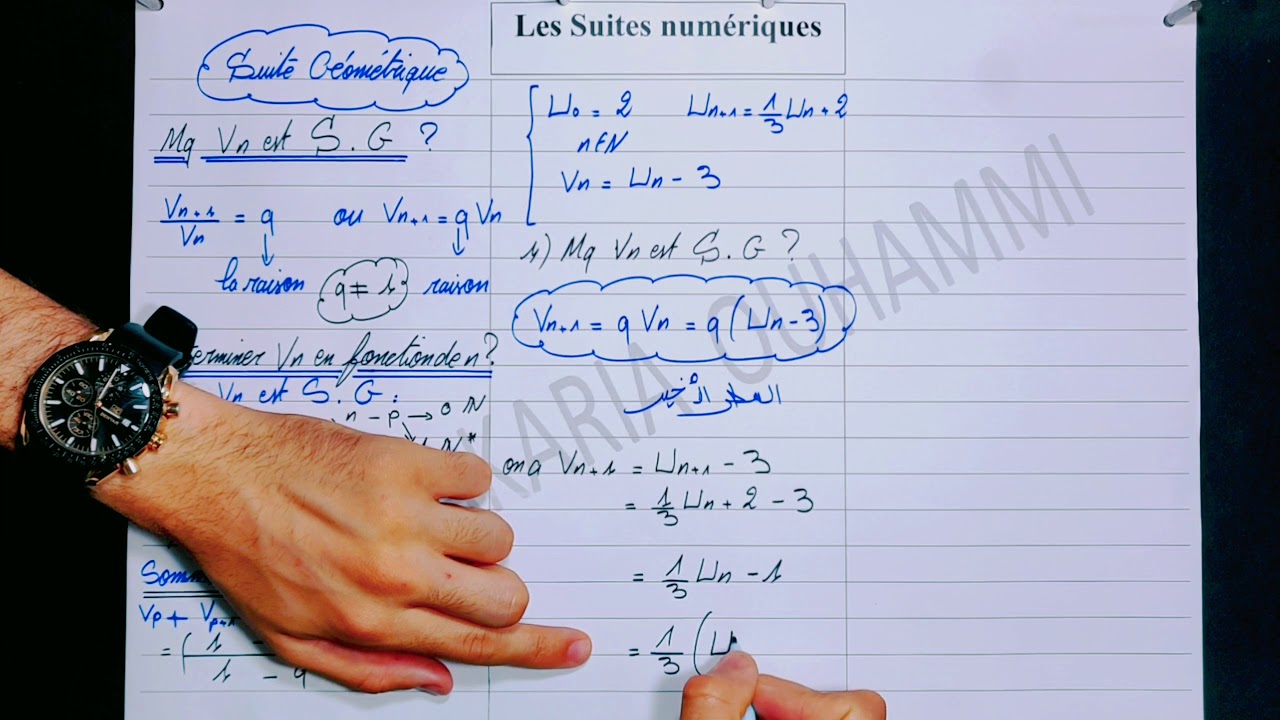 Les Suites numériques
Suite Géométrique
Mq Vn est S.G ?
Vn+1/Vn = q ou Vn+1 = q Vn
la raison q ≠ 1 raison
terminer Vn en fonction de n ?
Vn est S.G :
n - p → 0 N
1 N*
Somm
Vp + Vp+1
= (1 -
1 - q
U0 = 2 Un+1 = 1/3 Un + 2
n∈N
Vn = Un - 3
1) Mq Vn est S.G ?
Vn+1 = q Vn = q (Un - 3)
السطر الأخير
on a Vn+1 = Un+1 - 3
= 1/3 Un + 2 - 3
= 1/3 Un - 1
= 1/3 (U
ZAKARIA OUHAMMI